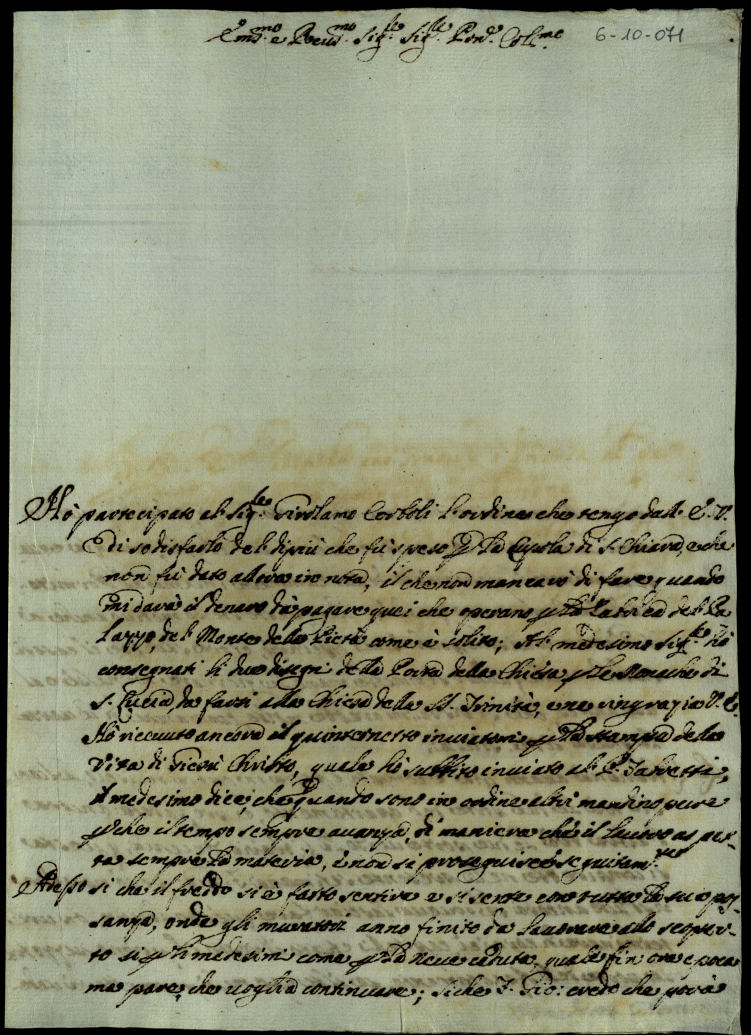 Em.mo e Rev.mo Sig.re Sig.re Pron. Col.mo
6-10-071
Hò partecipato al Sig.re Girolamo Corboli l'ordine che tengo dall' E. V.
di sodisfarlo del di più che fù speso p la Cupola di S. Chiara, e che
non fù dato allora in nota, il che non mancarò di fare quando
mi darà il denaro da pagare quei che operano p la fabrica del Pa
lazzo, del Monte della Pietà come è solito; Al medesimo Sig.re hò
consegnati li due disegni della Porta della Chiesa p le Monache di
S. Lucia, da farsi alla Chiesa della SS. Trinità, e ne ringrazio V. E.
Hò riceuuto ancora il quinternetto inuiatomi p la stampa della
Vita di Giesù Christo, quale hò subbito inuiato al P.
il medesimo dice, che quando sono in ordine altri mandino pure
pche il tempo sempre auanza, di maniera che il lauoro aspet-
ta sempre la materia, e non si proseguisce seguitam.te
Adesso si che il freddo si è fatto sentire e si sente con tutta la sua pos-
sanza, onde gli muratori anno finito da lauorare allo scoper-
to si p li medesimi come p la neue caduta, quale fin ora è poca
ma pare, che uoglia continuare; siche S. Gio: credo che potrà